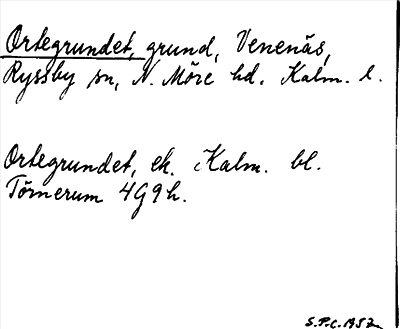 Ortegrundet, grund, Venenäs,
Ryssby sn, N. Möre hd. Kalm. l.
Ortegrundet, ek. Kalm. bl.
Törnerum 4G9h.
S.P.C. 1952